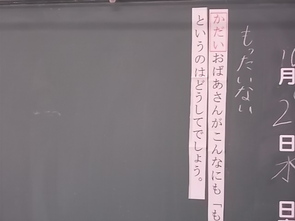 月 日
水
もったいない
かだい おばあさんがこんなにも「も
というのはどうしてでしょう。